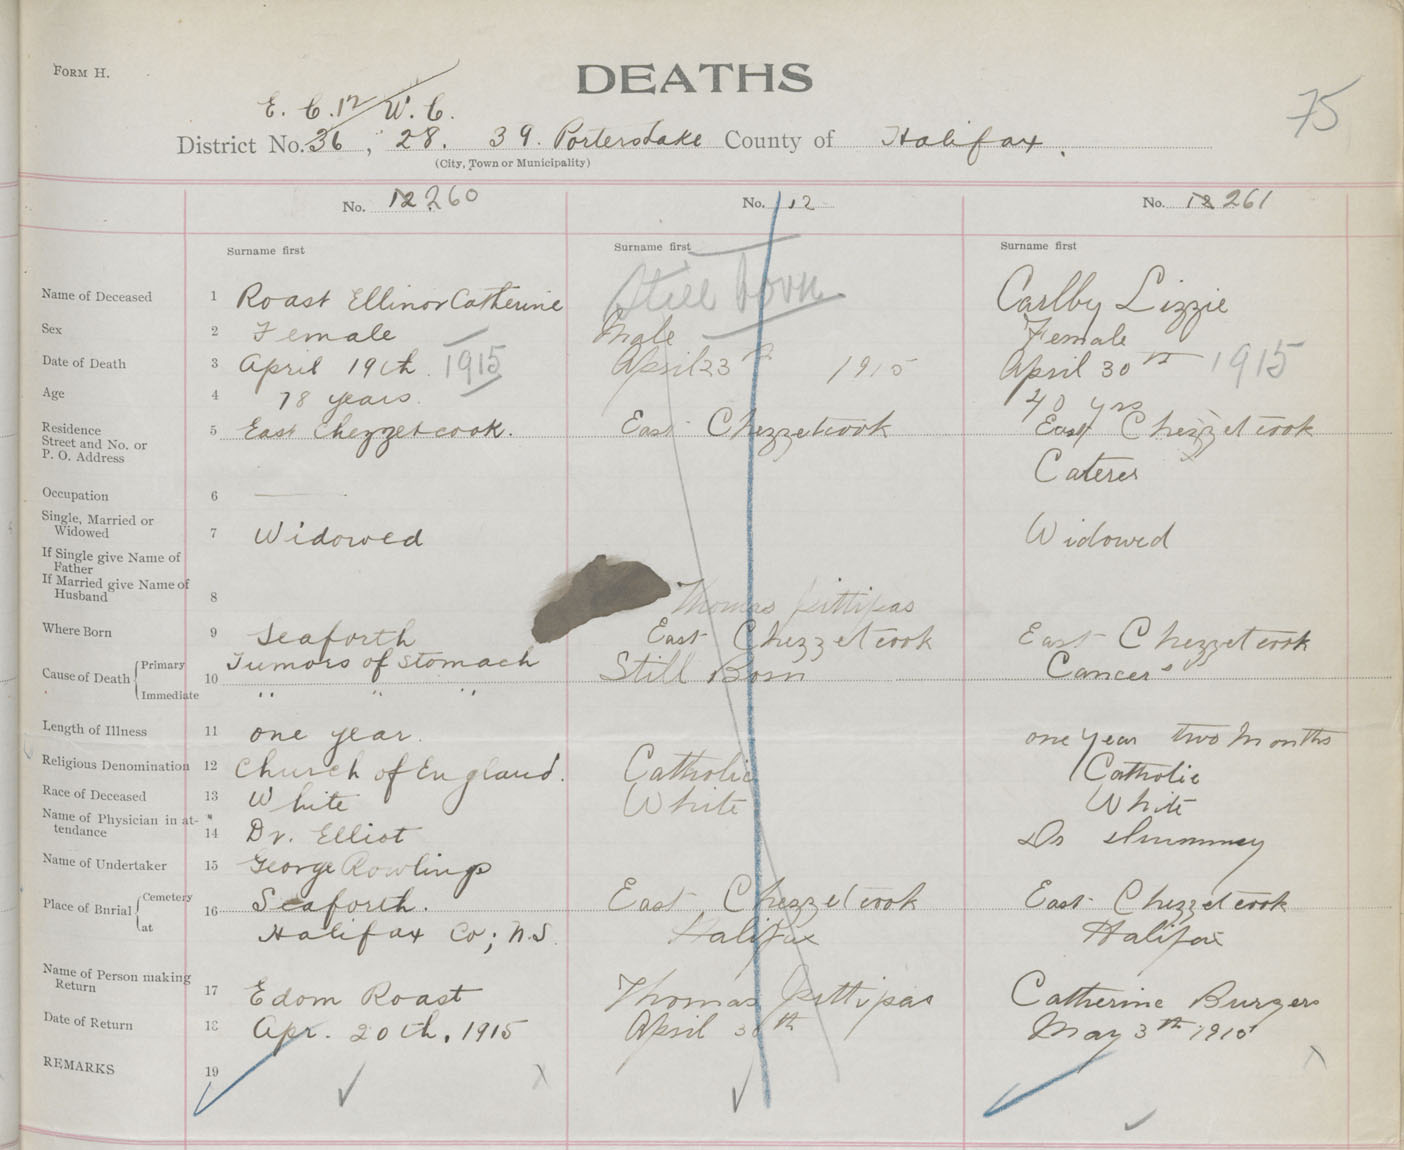 FORM H.
DEATHS
75
E. C. 17 W. C.
District No. 36, 28. 39. Porters Lake County of Halifax.
(City, Town or Municipality)
No. 12 260
No. 12
No. 12 261
Surname first
Surname first
Surname first
Still born
Name of Deceased 1 Roast Ellinor Catherine Carlby Lizzie
Sex 2 Female Male Female
Date of Death 3 April 19th. 1915 April 23rd 1915 April 30th 1915
Age 4 78 years. 40 yrs
Residence
Street and No. or
P. O. Address
5 East Chezzetcook. East Chezzetcook East Chezzetcook
Caterer
Occupation 6
Single, Married or
Widowed
7 Widowed Widowed
If Single give Name of
Father
If Married give Name of
Husband
8 Thomas Pettipas
Where Born 9 Seaforth East Chezzetcook East Chezzetcook
Cause of Death Primary 10 Tumors of Stomach Still Born Cancer
Immediate " " "
Length of Illness 11 one year. one year two months
Religious Denomination 12 Church of England. Catholic Catholic
Race of Deceased 13 White White White
Name of Physician in at-
tendance
14 Dr. Elliot Dr
Name of Undertaker 15 George Rowlings
Place of Burial Cemetery 16 Seaforth. East Chezzetcook East Chezzetcook
at Halifax Co; N.S. Halifax Halifax
Name of Person making
Return
17 Edom Roast Thomas Pettipas Catherine Burgers
Date of Return 18 Apr. 20th, 1915 April 30th May 3th 1915
REMARKS 19